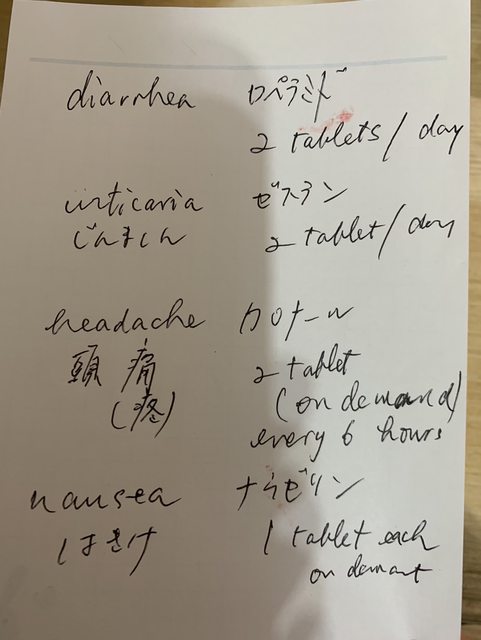 diarrhea ロペラミド
2 tablets / day
urticaria ゼスラン
じんましん 2 tablet / day
headache カロナール
頭痛 2 tablet
(疼) (on demand)
every 6 hours
nausea ナウゼリン
はきけ 1 tablet each
on demant